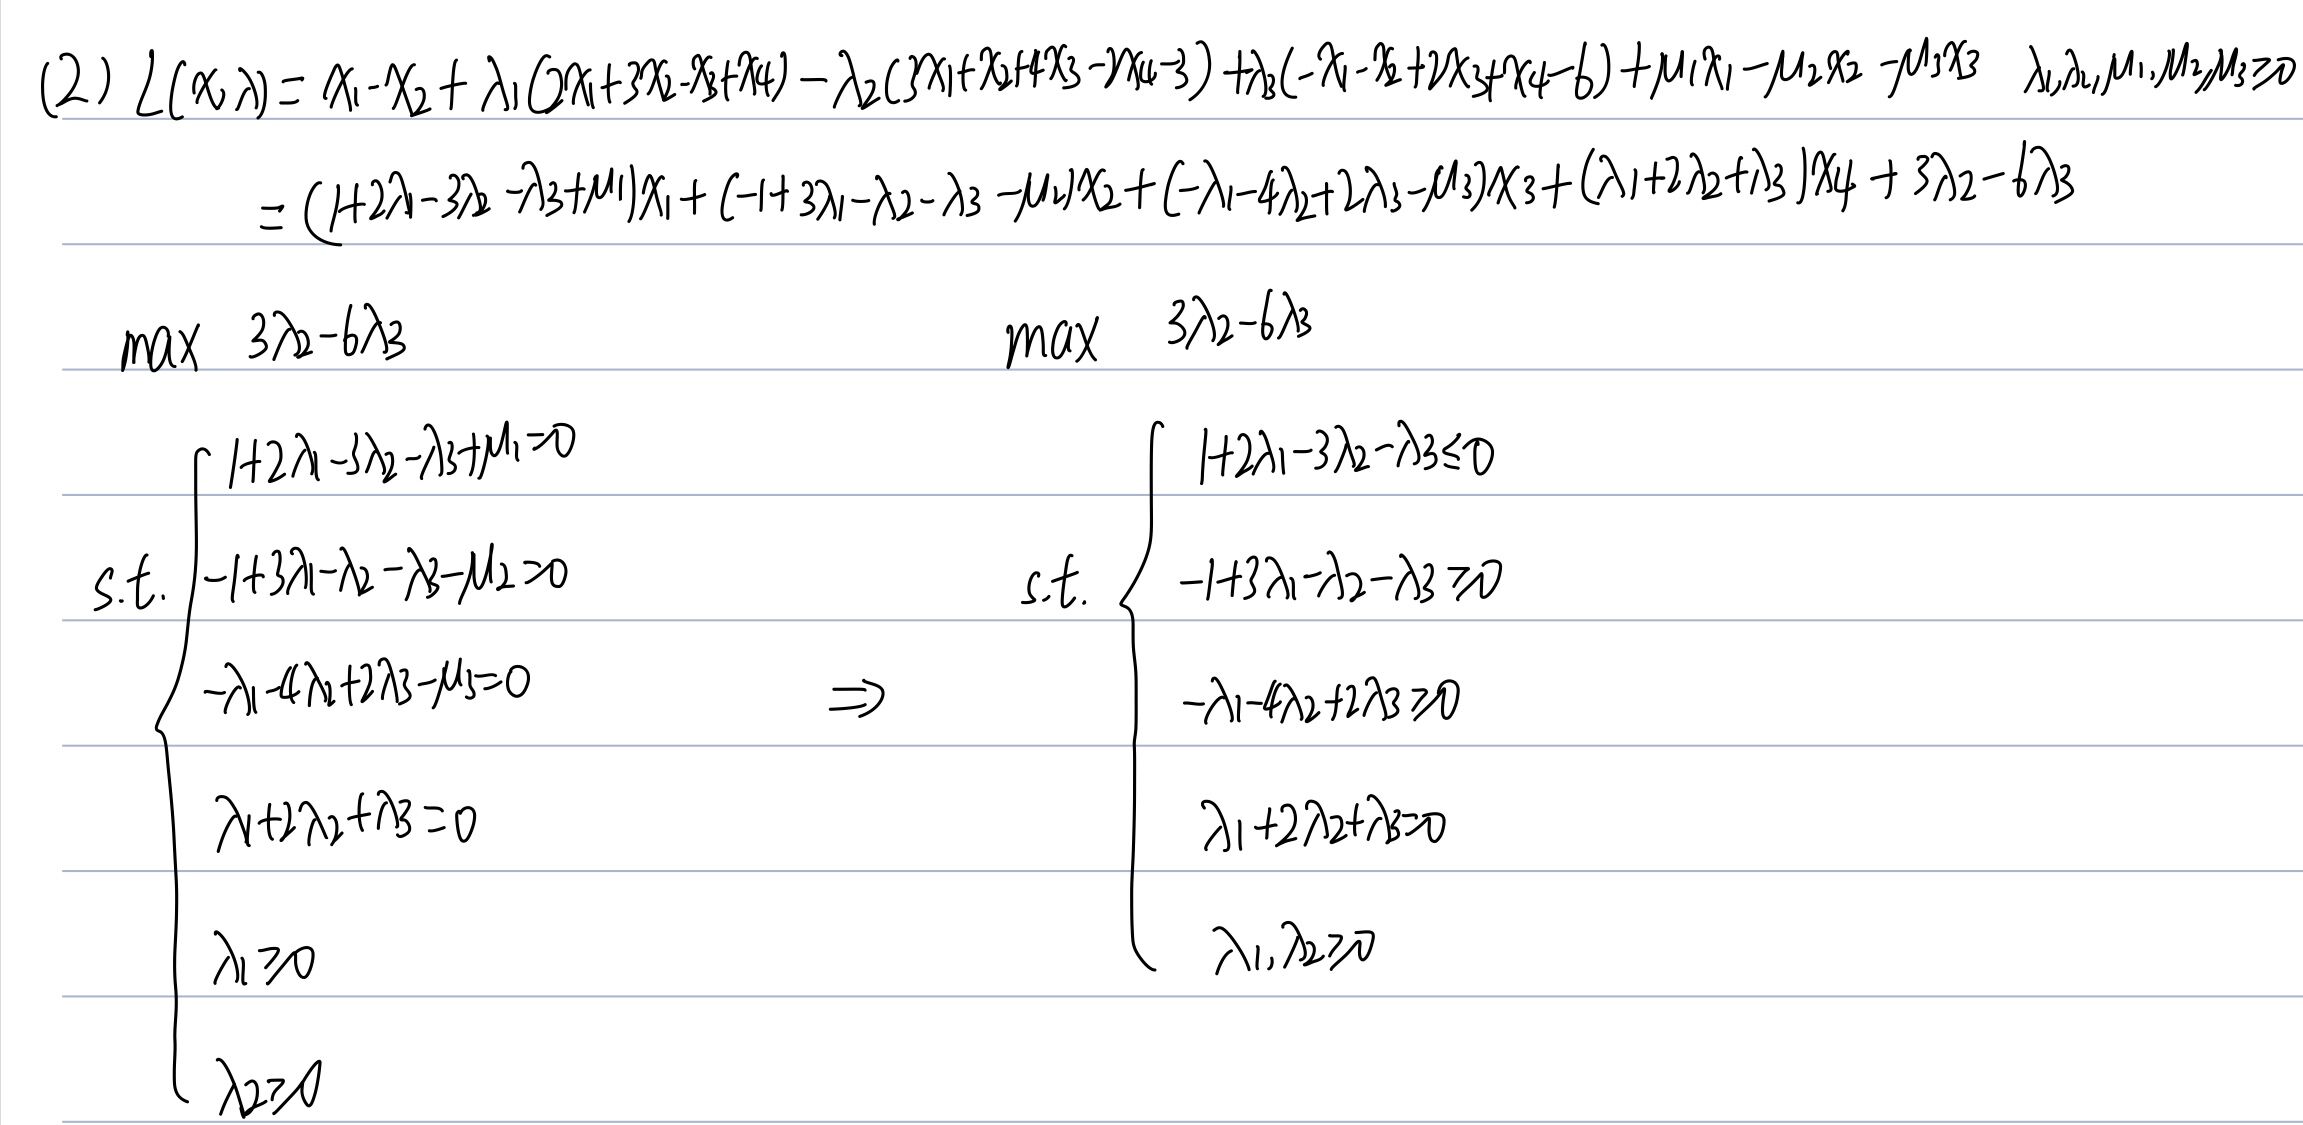 (2) L(x,λ) = x₁-x₂+λ₁(2x₁+3x₂-x₃+x₄)-λ₂(3x₁+x₂+4x₃-2x₄-3)+λ₃(-x₁-x₂+2x₃+x₄-6)+μ₁x₁-μ₂x₂-μ₃x₃ λ₁,λ₂,μ₁,μ₂,μ₃≥0
=(1+2λ₁-3λ₂-λ₃+μ₁)x₁+(-1+3λ₁-λ₂-λ₃-μ₂)x₂+(-λ₁-4λ₂+2λ₃-μ₃)x₃+(λ₁+2λ₂+λ₃)x₄+3λ₂-6λ₃
max 3λ₂-6λ₃
s.t.
1+2λ₁-3λ₂-λ₃+μ₁=0
-1+3λ₁-λ₂-λ₃-μ₂=0
-λ₁-4λ₂+2λ₃-μ₃=0
λ₁+2λ₂+λ₃=0
λ₁≥0
λ₂≥0
⇒
max 3λ₂-6λ₃
s.t.
1+2λ₁-3λ₂-λ₃≤0
-1+3λ₁-λ₂-λ₃≥0
-λ₁-4λ₂+2λ₃≥0
λ₁+2λ₂+λ₃=0
λ₁,λ₂≥0